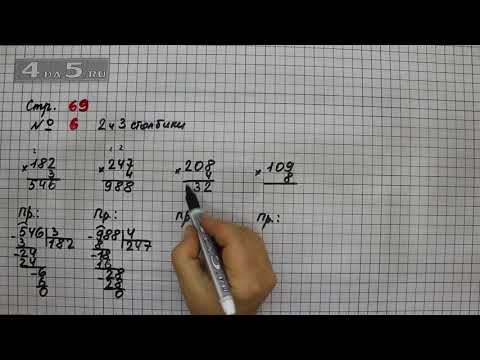 4 на 5.ru
Стр. 69
№ 6 2 и 3 столбики
2 1 2
×182 ×247 ×208 ×109
3 4 4 8
546 988 32
Пр.: Пр.: Пр: Пр:
-546 3 -988 4
3 182 8 247
-24 -18
24 16
-6 -28
6 28
0 0